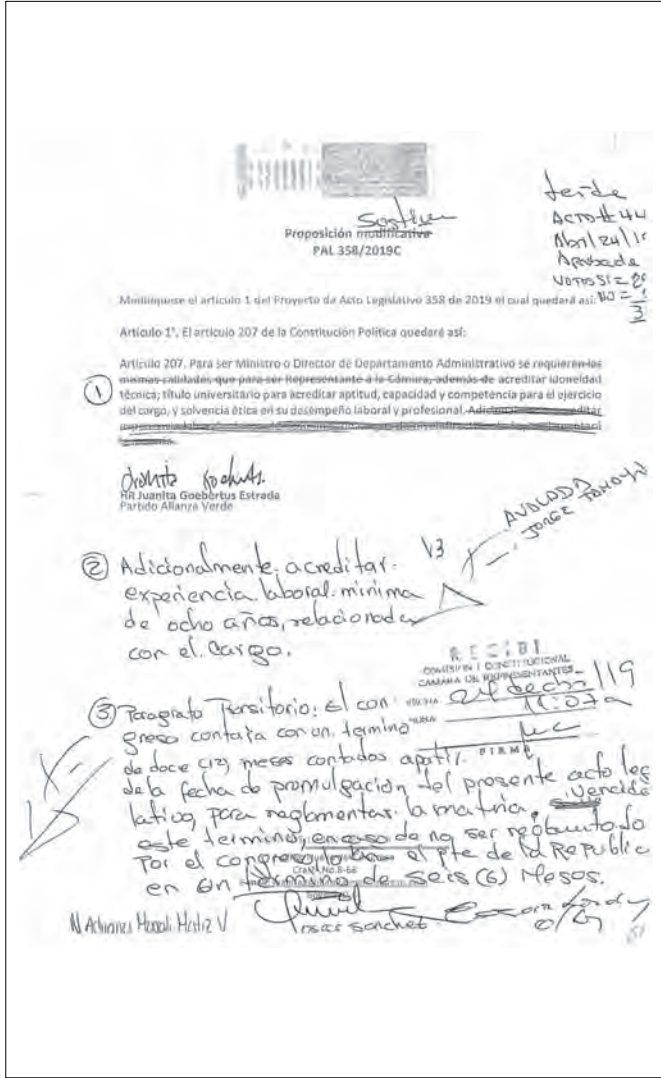 Proposición modificativa
PAL 358/2019C
Acto # 44
Abril/24/19
Aprobada
Votos SI =
NO =
3
Modifíquese el artículo 1 del Proyecto de Acto Legislativo 358 de 2019 el cual quedará así:
Artículo 1°. El artículo 207 de la Constitución Política quedará así:
Artículo 207. Para ser Ministro o Director de Departamento Administrativo se requieren las
mismas calidades que para ser Representante a la Cámara, además de acreditar idoneidad
① técnica; título universitario para acreditar aptitud, capacidad y competencia para el ejercicio
del cargo, y solvencia ética en su desempeño laboral y profesional.
HR Juanita Goebertus Estrada
Partido Alianza Verde
② Adicionalmente. acreditar.
experiencia laboral. minima
de ocho años, relacionada
con el. Cargo.
V3
JORGE
RECIBI
COMISION I CONSTITUCIONAL
CAMARA DE REPRESENTANTES
FECHA 24 19
HORA 11:07a
FIRMA
③ Paragrafo Transitorio: El con
greso contara con un. termino
de doce (12) meses contados apatir.
de la fecha de promulgación del presente acto leg
lativo, para reglamentar. la materia. Vencido
este termino, en caso de no ser
Por el congreso el Pte de la Republic
en Un termino de Seis (6) Meses.
N Adriana Magali Matiz V
oscar sanchez